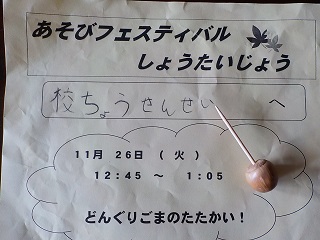 あそびフェスティバル
しょうたいじょう
校ちょうせんせいへ
11月 26日 (火)
12:45 ～ 1:05
どんぐりごまのたたかい!